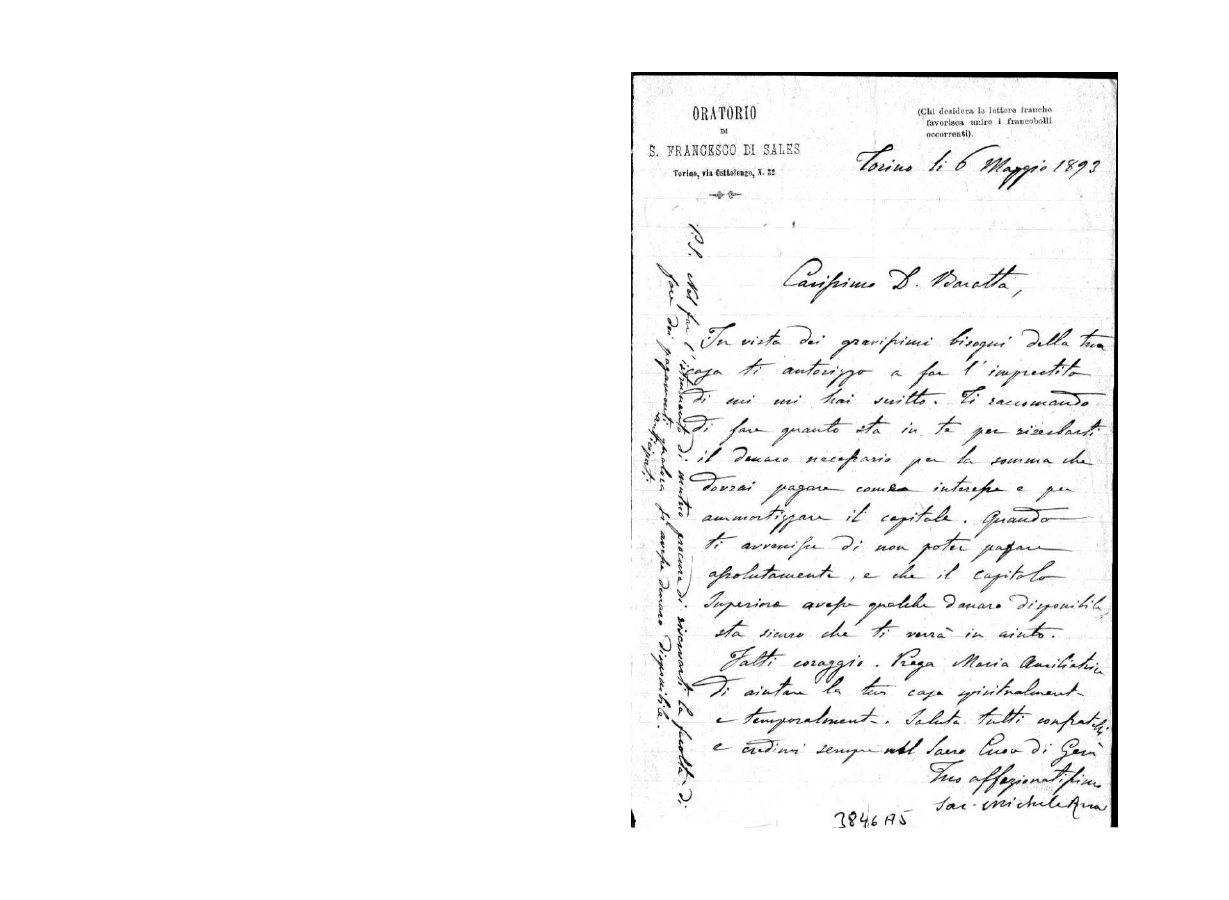 ORATORIO
DI
S. FRANCESCO DI SALES
Torino, via Cottolengo, N. 32
(Chi desidera le lettere franche
favorisca unire i francobolli
occorrenti).
Torino li 6 Maggio 1893
Carissimo D. Baratta,
In vista dei gravissimi bisogni della tua
casa ti autorizzo a far l'imprestito
di cui mi hai scritto. Ti raccomando
di fare quanto sta in te per
il denaro necessario per la somma che
dovrai pagare come interesse e per
ammortizzare il capitale. Quando
ti avvenisse di non poter pagare
assolutamente, e che il Capitolo
Superiore avesse qualche danaro disponibile,
sta sicuro che ti verrà in aiuto.
Fatti coraggio. Prega Maria Ausiliatrice
di aiutare la tua casa spiritualment-
e temporalment-. Saluta tutti confratelli
e credimi sempre nel Sacro Cuor di Gesù
Tuo affezionatissimo
Sac. Michele Rua
P.S. Nel far l'istrumento di mutuo procura di riservarti la facoltà di
fare dei pagamenti qualora si avesse denaro disponibile.
anticipati
3846 A5